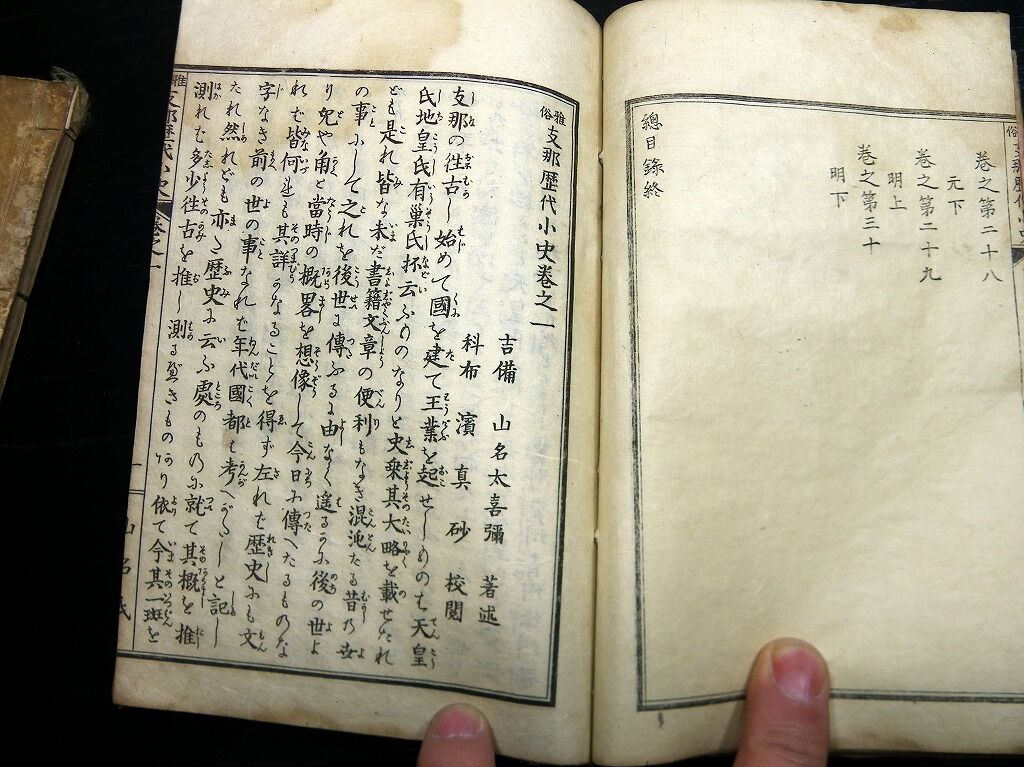 俗支那歴代小史
巻之第二十八
元下
巻之第二十九
明上
巻之第三十
明下
總目錄終
雅俗支那歴代小史巻之一
吉備 山名太喜彌 著述
科布 濱真砂 校閲
支那の徃古し始めて國を建て王業を起せしものは天皇
氏地皇氏有巢氏抔云ふものなりと史乗其大略を載せたれ
ども是れ皆な未だ書籍文章の便利もなき混沌たる昔乃世
の事にして之れを後世に傳ふるに由なく遙るかに後の世よ
り兎や角と當時の概畧を想像して今日に傳へたるものな
れば皆何れも其詳かなることを得ず左れば歴史にも文
字なき前の世の事なれば年代國都も考へがたしと記し
たれ然れども亦た歴史に云ふ處のものに就て其概を推
測れば多少徃古を推し測るべきものあり依て今其一斑を
雅俗支那歴代小史 巻之一 一 山名氏